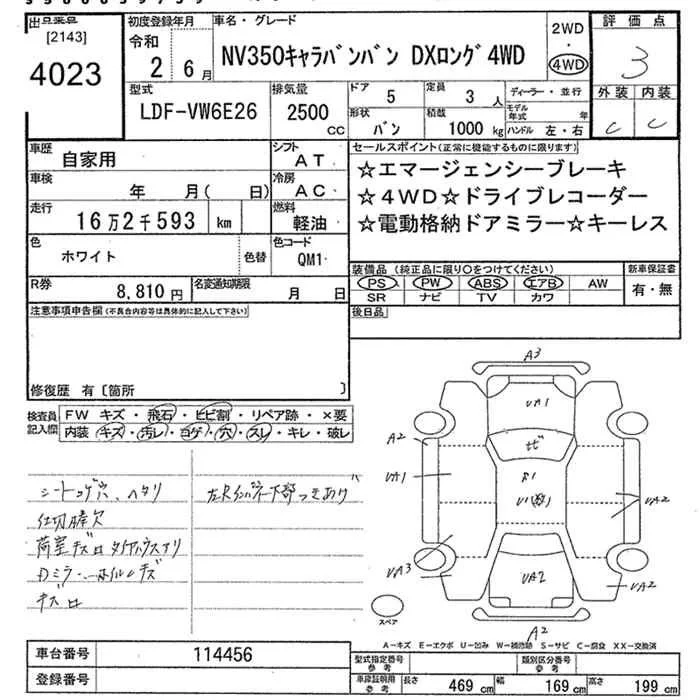 出品番号 初度登録年月 車名・グレード 2WD 評価点
[2143] 令和 ・ 3
4023 2年 6月 NV350キャラバンバン DXロング 4WD 4WD
型式 排気量 ドア 5 定員 3人 ディーラー・並行 外装 内装
LDF-VW6E26 2500 cc 形状 バン 積載 1000 kg モデル年式 年 C C
ハンドル 左・右
車歴 自家用 シフト AT セールスポイント(正常に機能するものに限ります)
車検 年 月( 日) 冷房 AC ☆エマージェンシーブレーキ
走行 16万2千593 km 燃料 軽油 ☆4WD☆ドライブレコーダー
☆電動格納ドアミラー☆キーレス
色 ホワイト 色替 色コード QM1
装備品(純正品に限り○をつけてください) 新車保証書
R券 8,810円 名変通知期限 月 日 PS PW ABS エアB AW 有・無
SR ナビ TV カワ
注意事項申告欄(不具合内容等は具体的に記入して下さい) 後日品
修復歴 有〔箇所 〕
検査員記入欄 FW キズ・飛石・ヒビ割・リペア跡・×要
内装・キズ・汚レ・コゲ・穴・スレ・キレ・破レ
シートコゲ穴、ヘタリ
A3
UA1
A2
UA1
UA2
UA3
UA2
UA2
A2
スペア
A－キズ E－エクボ U－凹み W－補修跡 S－サビ C－腐食 XX－交換済
車台番号 114456 型式指定番号 参考 類別区分番号 参考
登録番号 車庫証明用 参考 長さ 469 cm 幅 169 cm 高さ 199 cm